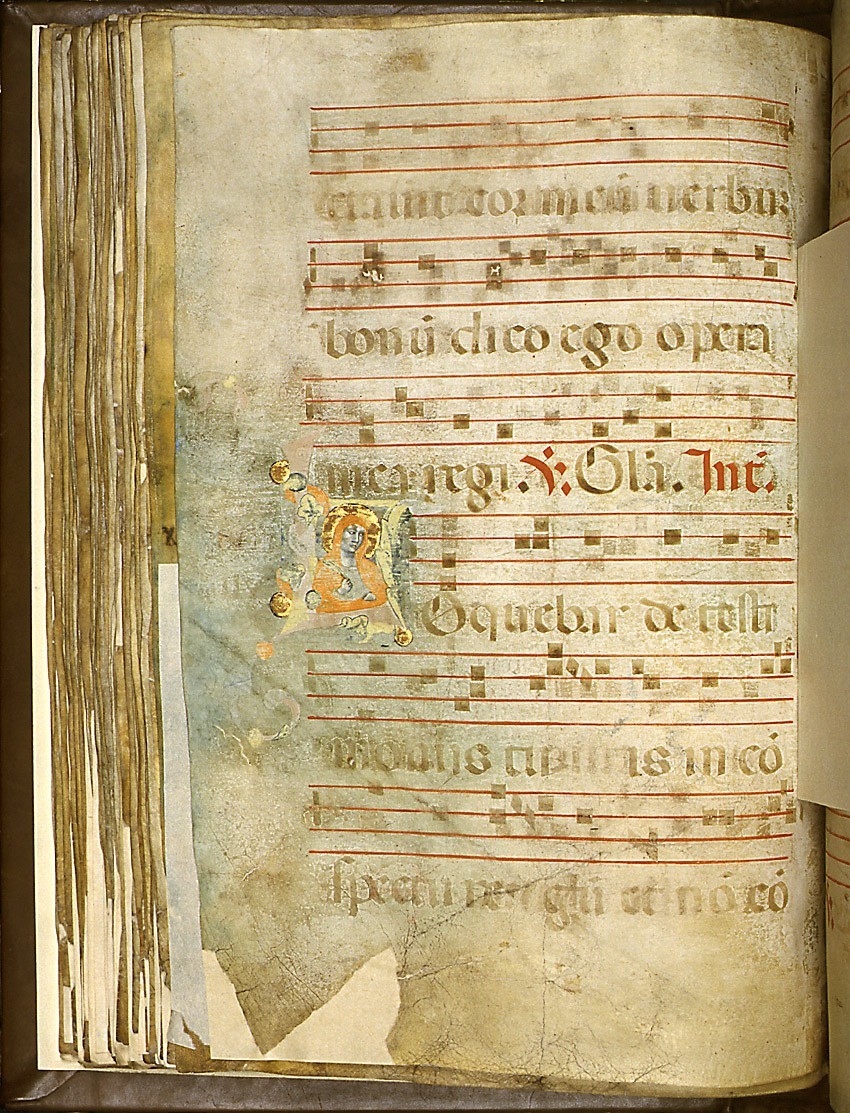 ctauit cor meū uerbū
bonū dico ego opera
mea regi. ℣. Gl̄a. Int̄.
Loquebar de testi
monijs tuis in cō
spectu et nō cō